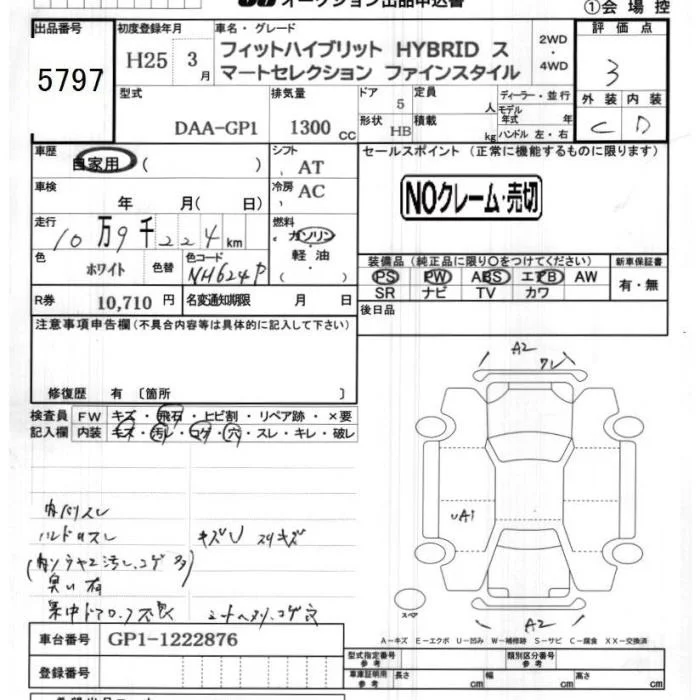 オークション出品申込書 ①会場控
出品番号 5797
初度登録年月 H25 3月
車名・グレード フィットハイブリット HYBRID ス
マートセレクション ファインスタイル
2WD・4WD
評価点 3
外装 C 内装 D
型式 DAA-GP1
排気量 1300 CC
ドア 5 定員 人
形状 HB 積載 kg
ディーラー・並行
モデル年式 年
ハンドル 左・右
車歴 自家用 ( )
シフト AT
車検 年 月( 日)
冷房 AC
走行 10万9千224km
燃料 ガソリン
軽油
( )
色 ホワイト 色替 色コード NH624P
R券 10,710 円 名変通知期限 月 日
セールスポイント (正常に機能するものに限ります)
NOクレーム・売切
装備品 (純正品に限り○をつけてください) 新車保証書
PS PW ABS エアB AW 有・無
SR ナビ TV カワ
後日品
注意事項申告欄 (不具合内容等は具体的に記入して下さい)
修復歴 有 〔箇所 〕
検査員記入欄 FW キズ・飛石・ヒビ割・リペア跡・×要
内装 キズ・汚レ・コゲ・穴・スレ・キレ・破レ
A2
ワレ
UA1
A2
スペア
内バリスレ
ハンドルスレ キズU スリキズ
臭い有
A-キズ E-エクボ U-凹み W-補修跡 S-サビ C-腐食 XX-交換済
車台番号 GP1-1222876
登録番号
型式指定番号 参考 類別区分番号 参考
車庫証明用 参考 長さ cm 幅 cm 高さ cm